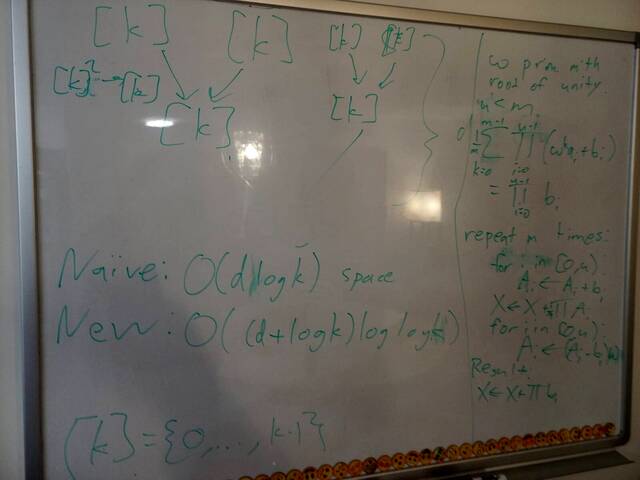 [k] [k] [k] [k]
[k]² → [k]
[k] [k]
Naive: O(d log k) space
New: O((d+logk)loglogk)
[k]={0,..., k-1}
ω prim mth
root of unity
n < m
1/m ∑ k=0 m-1 ∏ i=0 n-1 (ω^k a_i + b_i)
= ∏ i=0 n-1 b_i
repeat m times:
for i in [0,n):
A_i ← A_i + b_i
X ← X + ∏ A_i
for i in [0,n):
A_i ← (A_i - b_i)ω
Result:
X ← X + ∏ b_i